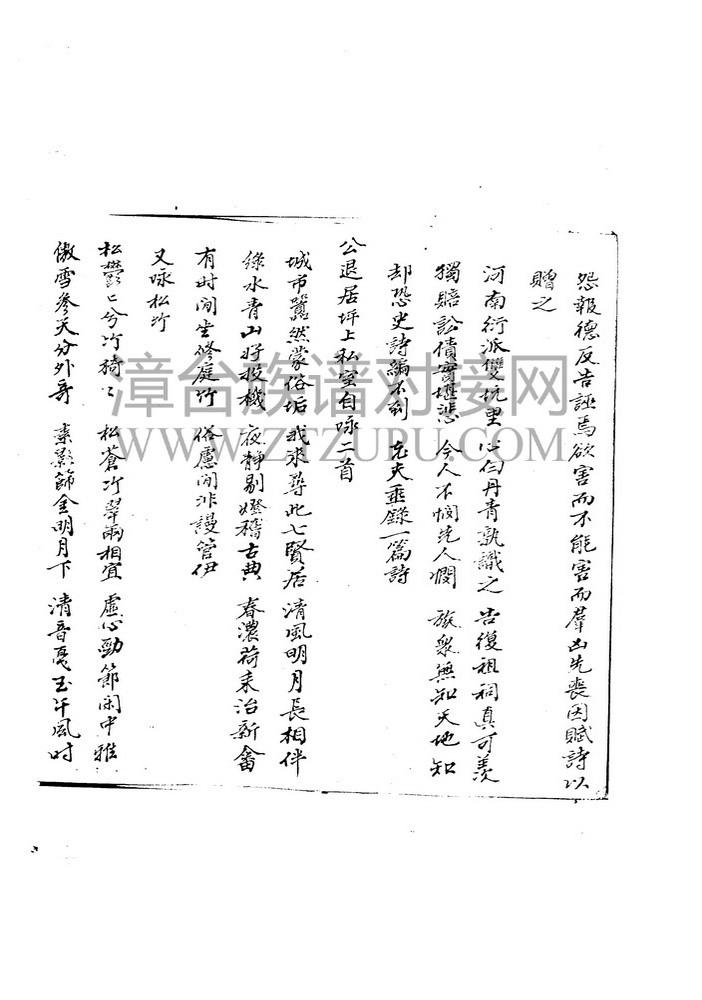 怨報德反告誣焉欲害而不能害而羣凶先喪因賦詩以
贈之
河南衍派雙坑里 心白丹青孰識之 告復祖祠真可羨
獨賠訟債實堪悲 今人不憫先人憫 族衆無知天地知
却恐史詩編不到 克夫垂錄一篇詩
公退居坪上私室自咏二首
城市囂然蒙俗垢 我來尋此七賢居 清風明月長相伴
綠水青山好投機 夜靜剔燈稽古典 春濃荷耒治新畬
有时间坐修庭竹 俗慮閒非謾管伊
又咏松竹
松鬱〻兮竹猗〻 松蒼竹翠兩相宜 虛心勁節閑中雅
傲雪參天分外奇 素影篩金明月下 清音戛玉午風吋
漳台族谱对接网
WWW.ZTZUPU.COM